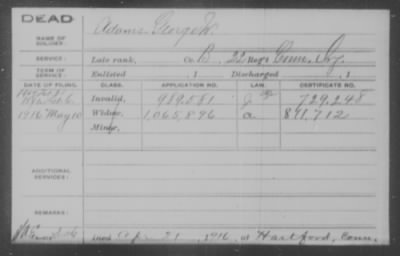 DEAD
NAME OF SOLDIER: Adams George W.
SERVICE: Late rank, Co. B, 22 Reg't Conn. Inf.
TERM OF SERVICE: Enlisted , 1 Discharged , 1
DATE OF FILING. CLASS. APPLICATION NO. LAW. CERTIFICATE NO.
Invalid, 989,581 729,248
1916 May 10 Widow, 1,065,896 a 811,712
Minor,
ADDITIONAL SERVICES:
REMARKS:
Died Apr 21, 1916, at Hartford, Conn.